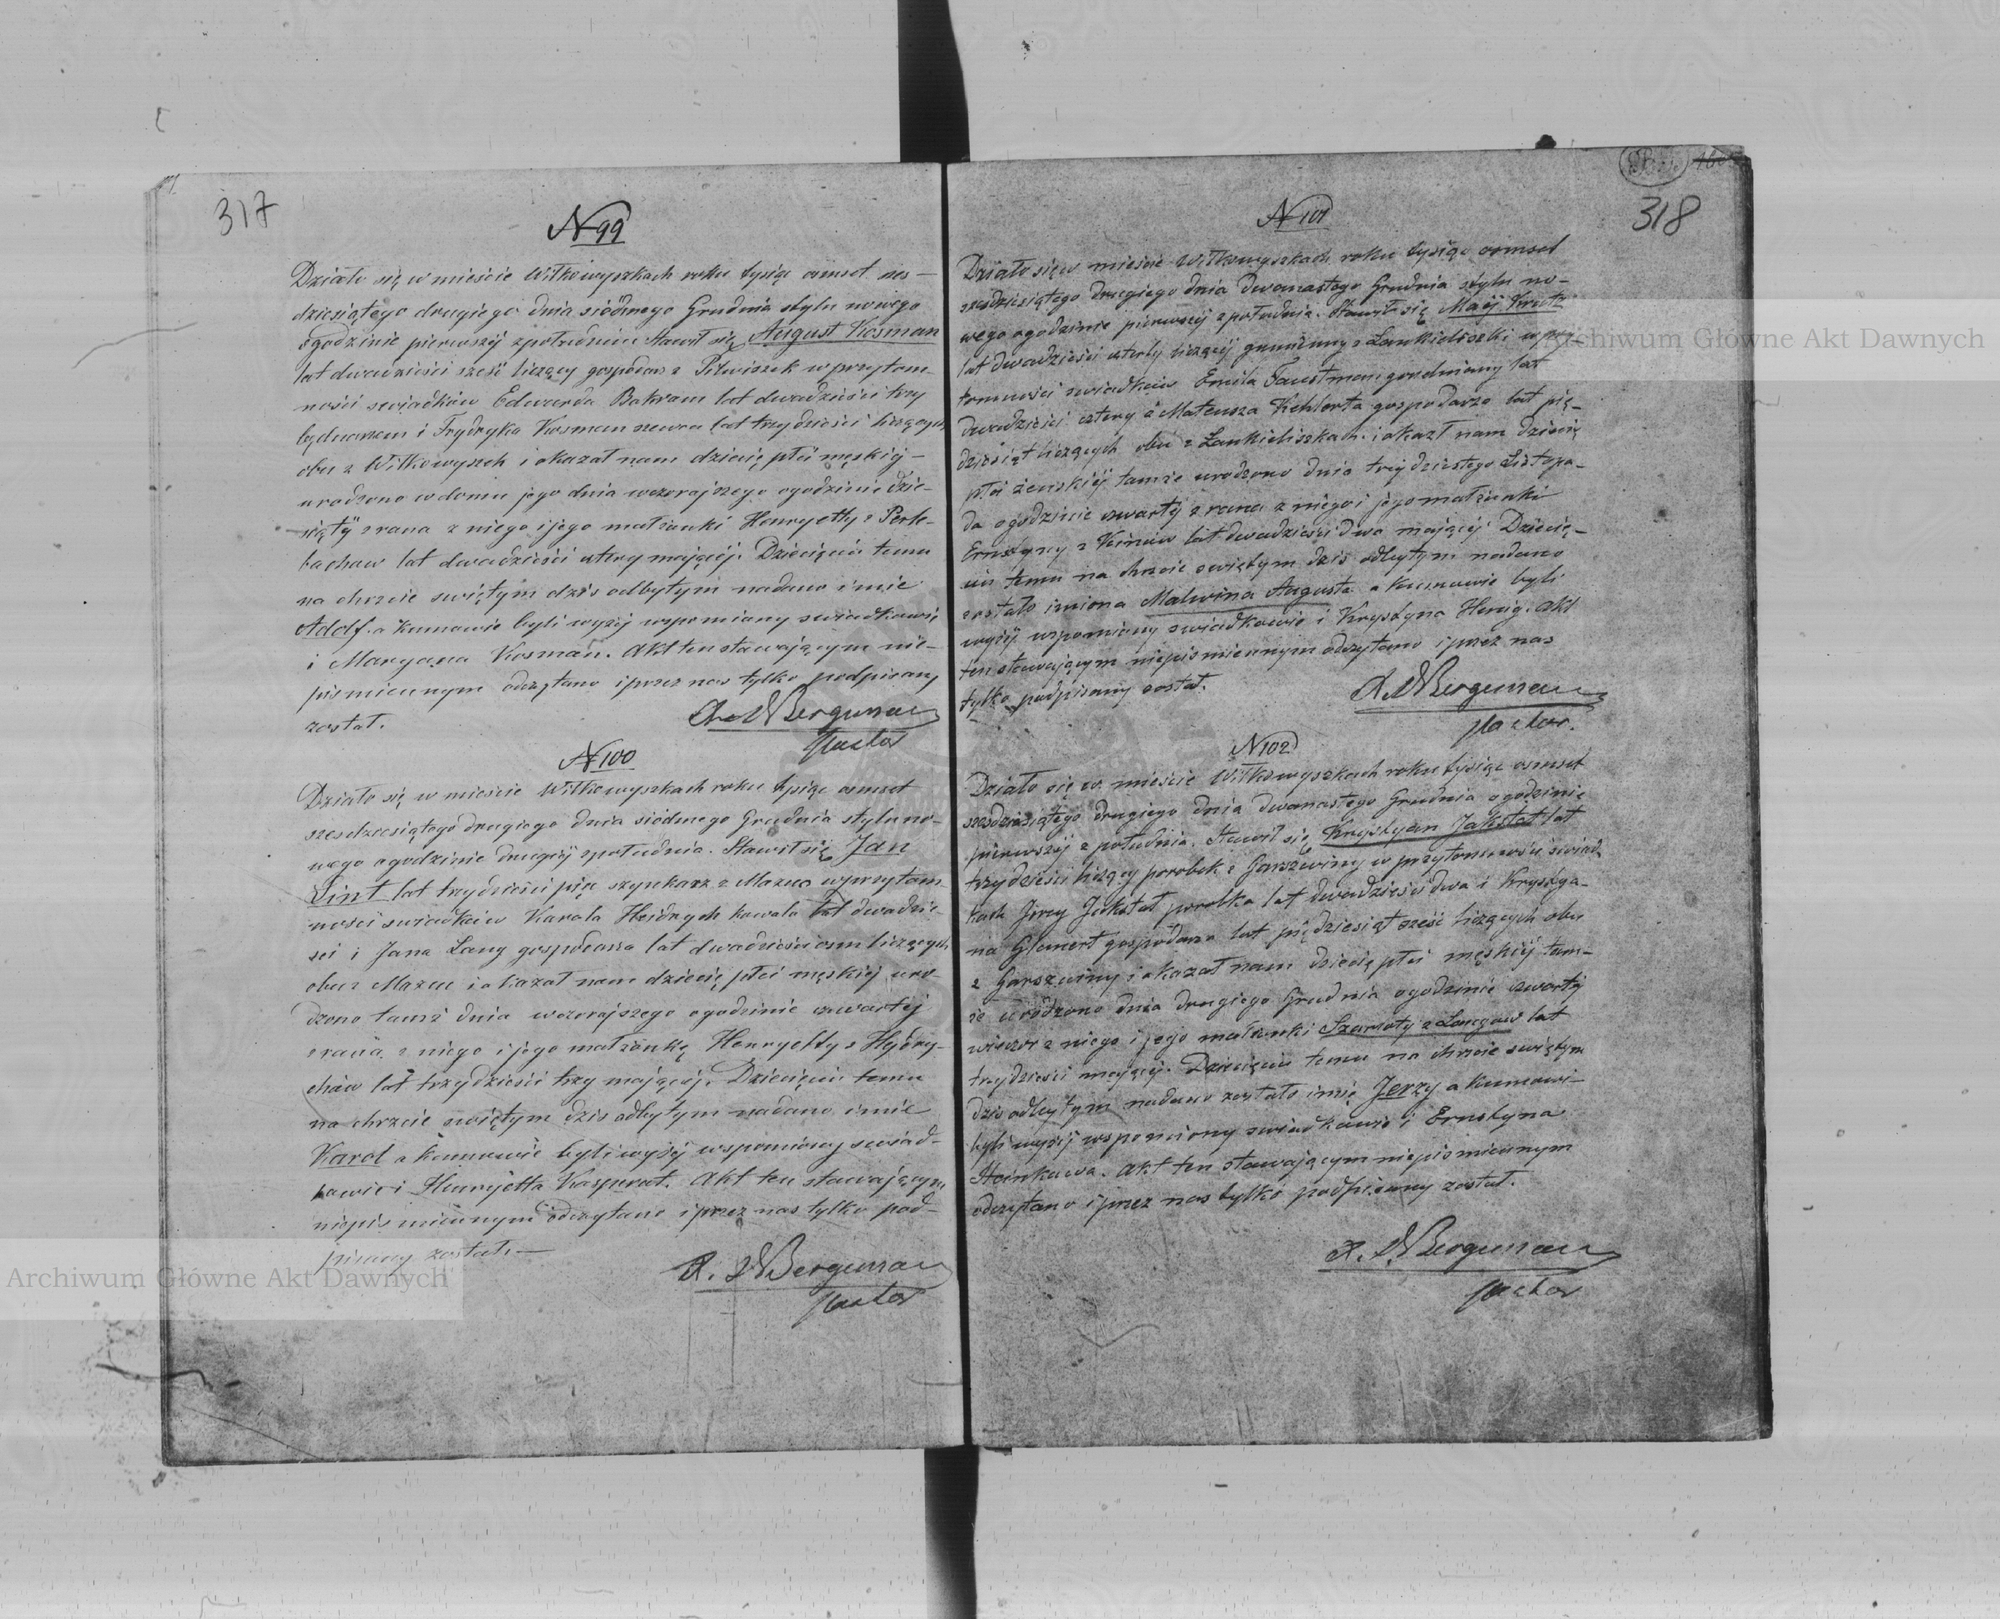 317
N 99
Działo się w mieście Wiłkowyszkach roku tysiąc ośmset sześ-
dziesiątego drugiego dnia siódmego Grudnia stylu nowego
o godzinie pierwszéj z południa stawił się August Kosman
lat dwadzieścia sześć liczący gospodarz z Pilwiszek w przytom-
ności świadków Edwarda Bakram lat dwadzieścia trzy
bednarzem i Frydryka Kosman szewca lat trzydzieści liczących
obu z Wiłkowyszek i okazał nam dziecię płci męskiéj
urodzone w domu jego dnia wczorajszego o godzinie dzie-
siątéj z rana z niego i jego małżonki Henryetty z Perle-
bachow lat dwadzieścia cztery mającéj. Dziecięciu temu
na chrzcie świętym dziś odbytym nadano imie
Adolf. a kumowie byli wyżéj wspomiany świadkowie
i Maryana Kosman. Akt ten stawającym nie-
piśmiennym odczytano i przez nas tylko podpisany
został.
Bergmann
Pastor
N 100
Działo się w mieście Wiłkowyszkach roku tysiąc ośmset
sześdziesiątego drugiego dnia siódmego Grudnia stylu no-
wego o godzinie drugiéj z południa. Stawił się Jan
Lint lat trzydzieści pięć szynkarz z Mazuc w przytom-
ności świadków Karola Heidrych kowala lat dwadzie-
ści i Jana Lang gospodarza lat dwadzieścia ośm liczących
obu z Mazuc i okazał nam dziecię płci męskiéj uro-
dzone tamż dnia wczorajszego o godzinie czwartéj
z rana z niego i jego małżonką Henryetty z Hydry-
chów lat trzydzieści trzy mającéj. Dziecięciu temu
na chrzcie świętym dziś odbytym nadano imie
Karol a kumowie byli wyżéj wspomiony świad-
kowie i Henryetta Kasperat. Akt ten stawającym
niepiśmiennym odczytano i przez nas tylko pod-
pisany został.
Bergmann
Pastor
318
N 101
Działo się w mieście Wiłkowyszkach roku tysiąc ośmset
sześdziesiątego drugiego dnia dwunastego Grudnia stylu no-
wego o godzinie pierwszéj z południa. Stawił się
lat dwadzieścia cztery liczącéj z Łankieliszki w przy-
tomności świadków Emila Faustman lat
dwadzieścia cztery i Mateusza Kehlerta gospodarza lat pię-
dziesiąt liczących obu z Łankieliszkach i okazał nam dziecię
płci żeńskiéj tamże urodzone dnia trzydziestego Listopa-
da o godzinie czwartéj z rana z niego i jego małżonki
Ernstyny z lat dwadzieścia dwa mającéj. Dziecię-
ciu temu na chrzcie świętym dziś odbytym nadano
zostało imiona Malwina Augusta a kumowie byli
wyżéj wspomiony świadkowie i Krystyna Henig. Akt
ten stawającym niepiśmiennym odczytano i przez nas
tylko podpisany został.
Bergmann
Pastor.
N 102
Działo się w mieście Wiłkowyszkach roku tysiąc ośmset
sześdziesiątego drugiego dnia dwunastego Grudnia o godzinie
pierwszéj z południa. Stawił się Krystyan Jakstat lat
trzydzieści liczący parobek z Garszwiny w przytomności świad-
kach Jrzy Jakstat parobka lat dwadzieścia dwa i Krystya-
na Glemert gospodarza lat pięćdziesiąt sześć liczących obu
z Garszwiny i okazał nam dziecię płci męskiéj tam-
że urodzone dnia drugiego Grudnia o godzinie czwartéj
wieczór z niego i jego małżonki Szarloty z Langow lat
trzydzieści mającéj. Dziecięciu temu na chrzcie świętym
dziś odbytym nadano zostało imię Jerzy a kumowi-
byli wyżéj wspomciony świadkowie i Ernstyna
Akt ten stawającym niepiśmiennym
odczytano i przez nas tylko podpisany został.
Bergmann
Pastor
Archiwum Główne Akt Dawnych
Archiwum Główne Akt Dawnych